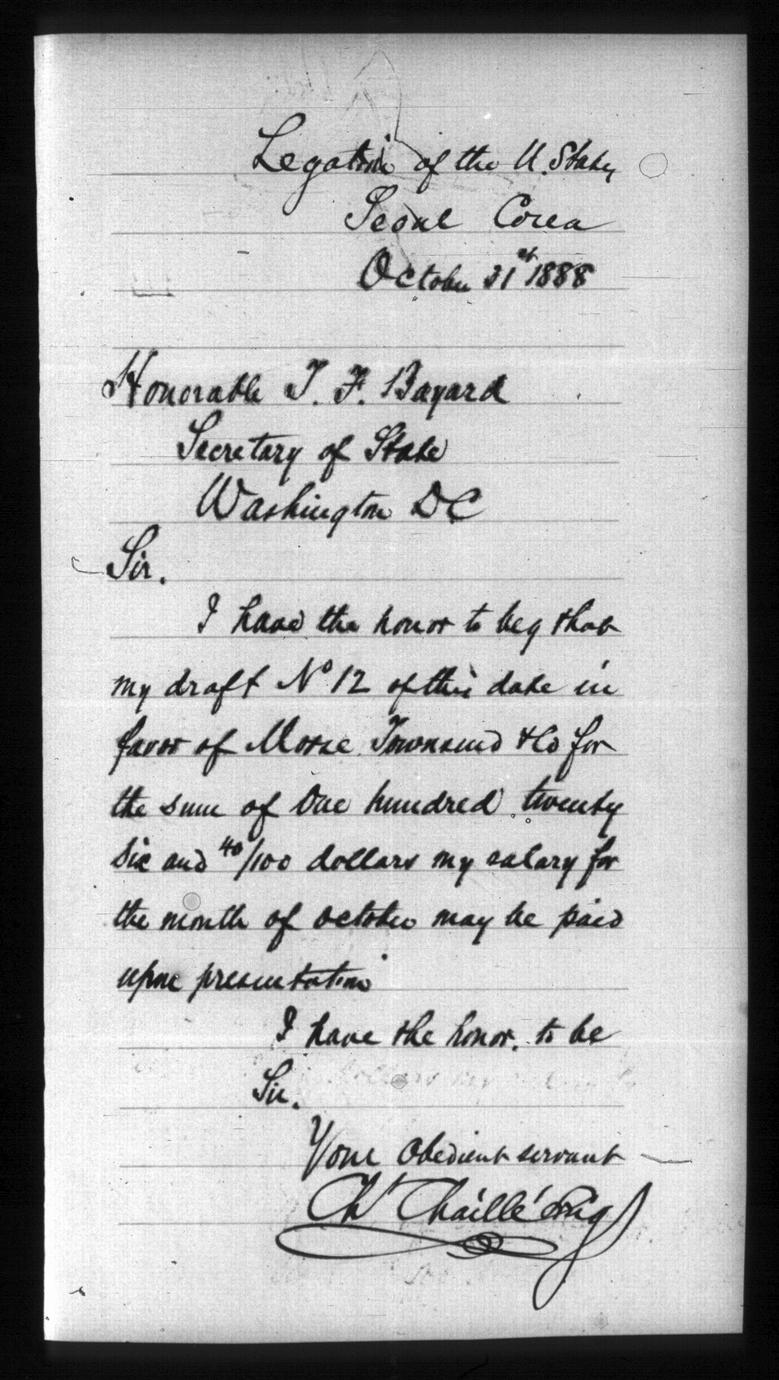 Legation of the U. States
Seoul Corea
October 31st 1888
Honorable T. F. Bayard
Secretary of State
Washington DC
Sir.
I have the honor to beg that
my draft No 12 of this date in
favor of Morse Townsend & Co for
the sum of One hundred twenty
six and 40/100 dollars my salary for
the month of October may be paid
upon presentation
I have the honor. to be
Sir.
Your obedient servant
Ch Chaillé Long